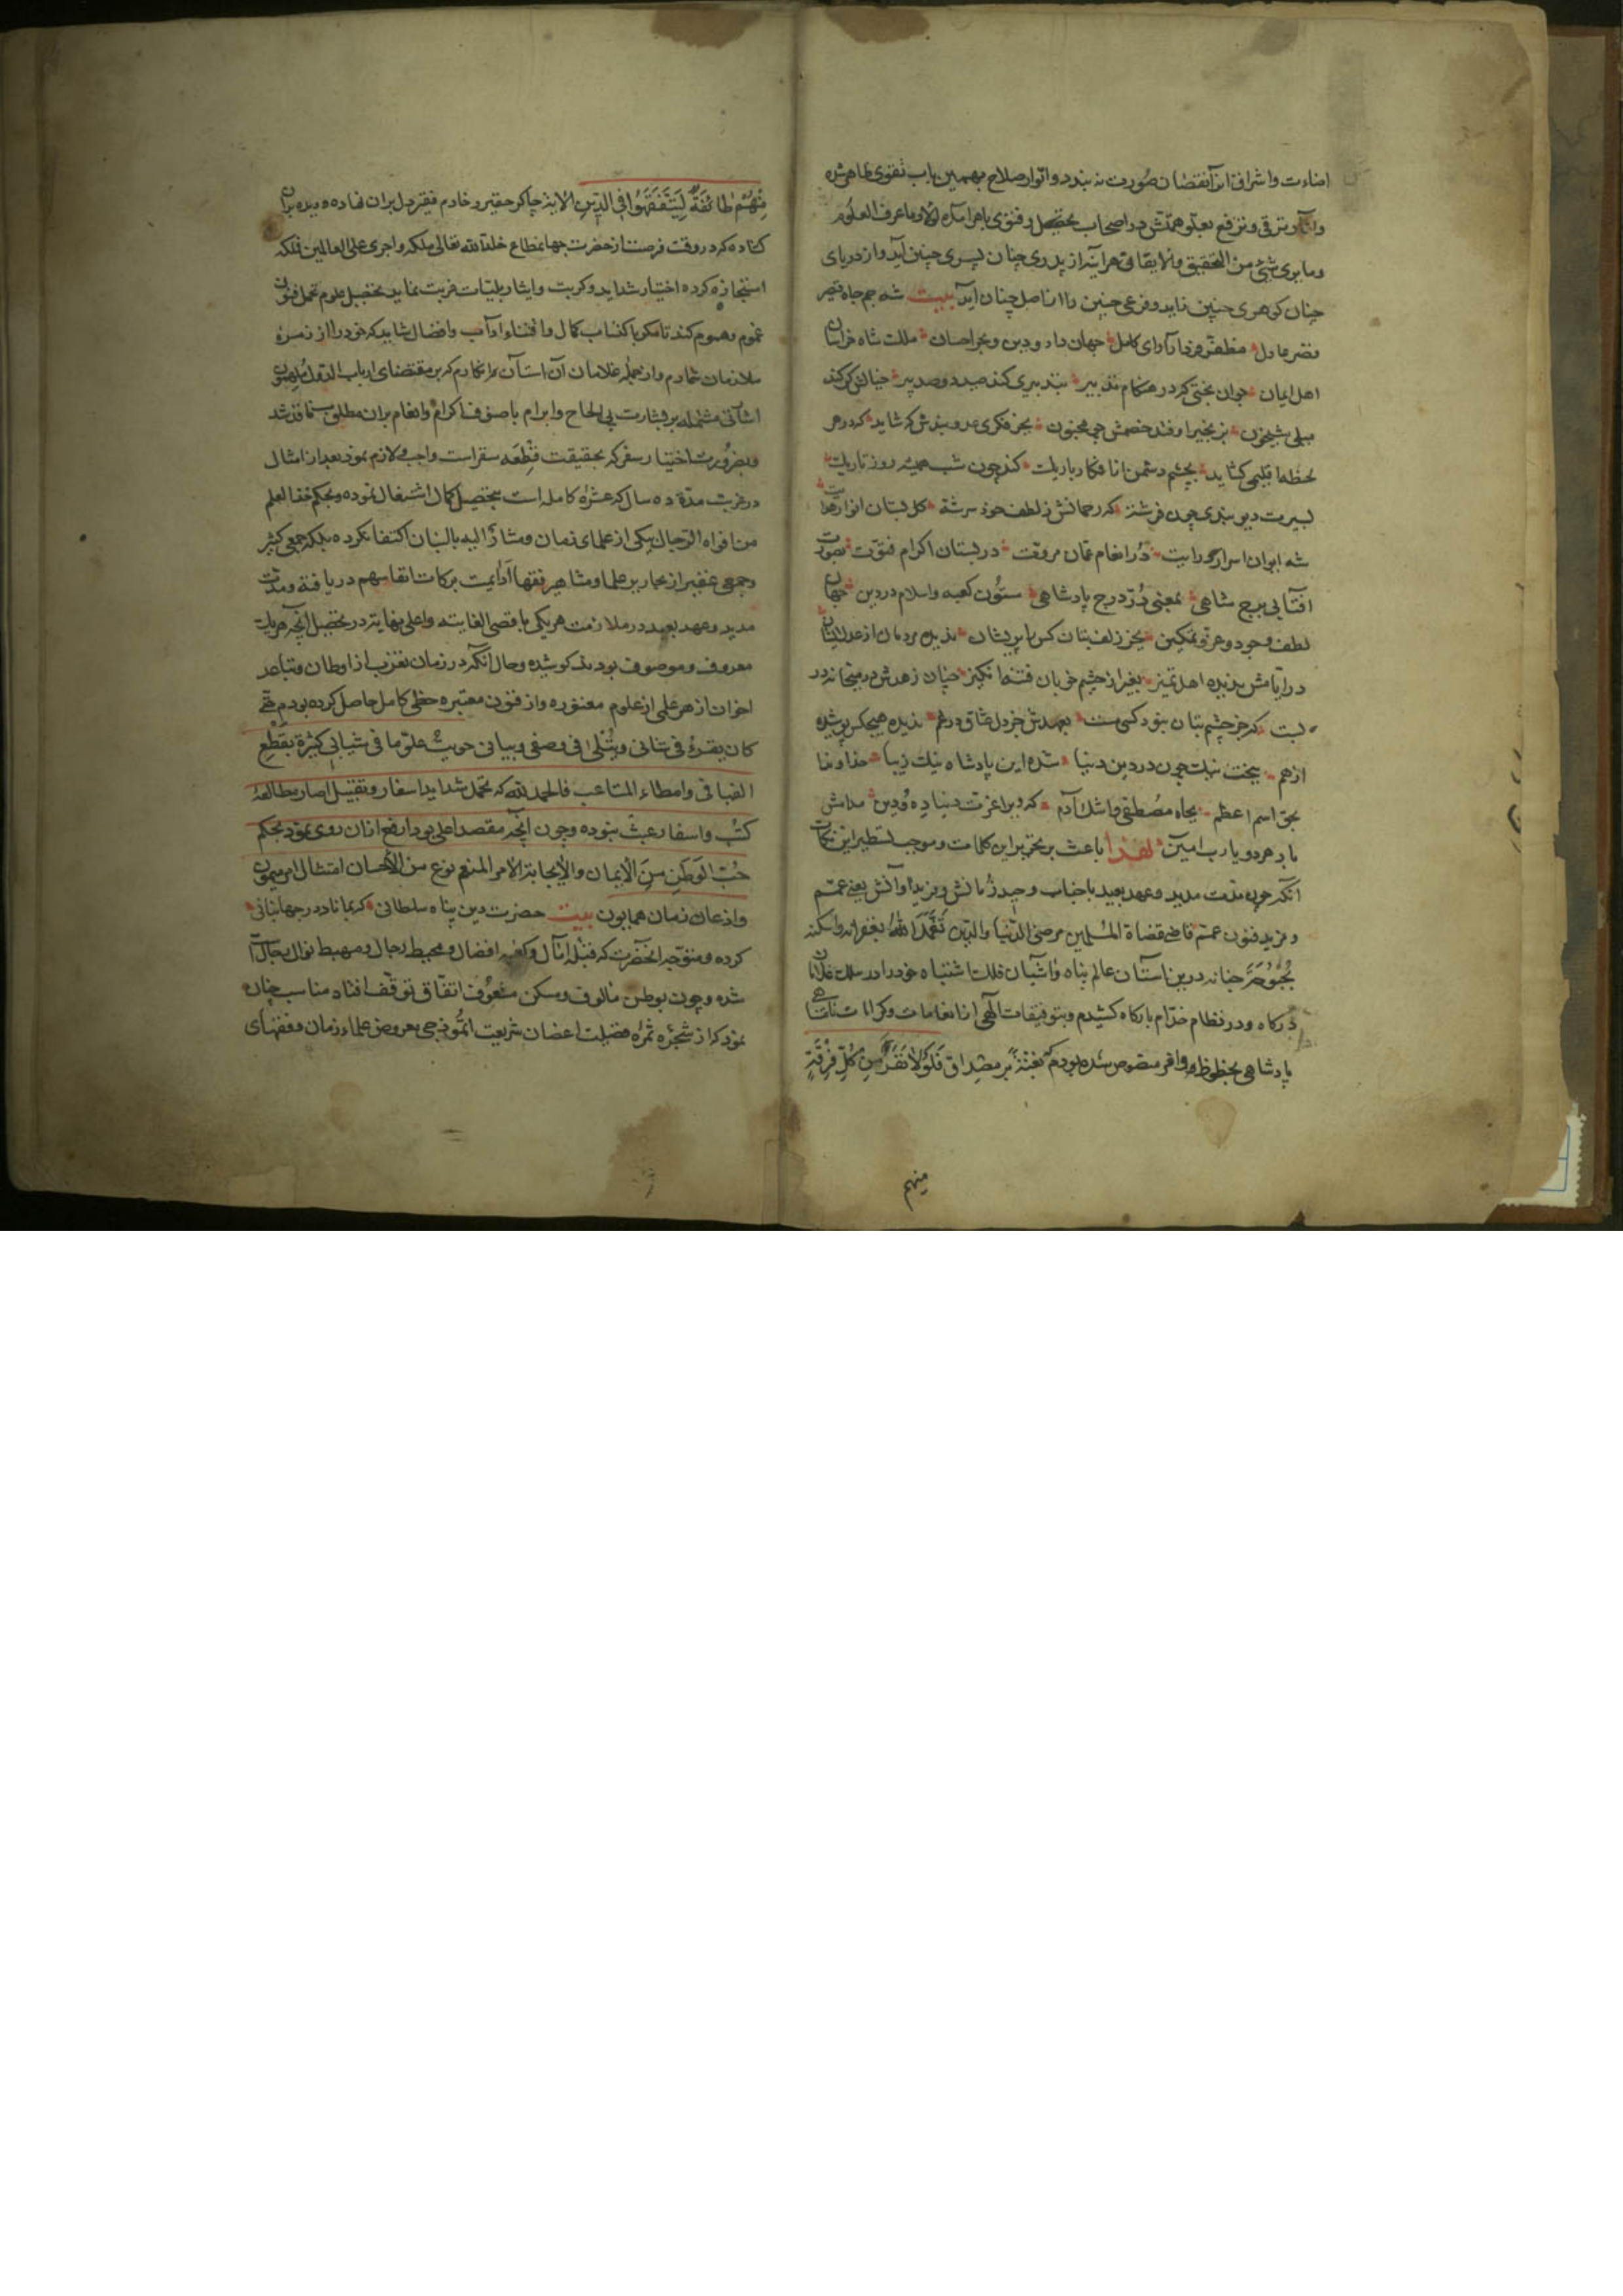 اضاءت واشراق انرا نقصان صورت نه بندد وانوار صلاح بهمین باب تقوی ظاهر شده
وانا وترقی وترفع بعلو همتش در اصحاب تحصیل وفتوی باهر
وما یری شئ من التحقیق والایقاق هر آینه از پدری چنان پسری چنین آید واز دریای
چنان کوهری چنین زاید وفرعی چنین را اصل چنان آید بیت شه جم جاه قیصر
مظفر رای کامل جهان داد ودین وبحر احسان ملک شاه خراسان
اهل ایمان جوان بختی که در هنکام تدبیر بتدبیری کند صد صد پیر
شبیخون بزنجیر اوفتد خصمش چو مجنون بجز فکری کشاید که در هر
لحظه اقلیمی کشاید بچشم دشمن از افکار باریک کند چون شب همیشه روز تاریک
بسیرت چون فرشته که رحمانش ز لطف خود سرشته کل بستان انوار
شه ایوان اسرار در انعام عمان مروت در بستان اکرام فتوت بصورت
افتابی برج شاهی بمعنی در درج پادشاهی ستون کعبه واسلام در دین جهان
لطف وجود وعز وتمکین بجز زلف بتان کس را پریشان ندیده مردمان از عدل ایشان
در ایامش بدیده اهل تمیز بغیر از چشم خوبان فتنه انکیز چنان زهدش در میخانه در
بست که جز چشم بتان نبود کسی مست بعهدش جز دل عشاق درهم ندیده هیچکس
ازهم بیخت نیک چون در دین ودنیا شده این پادشاه نیک زیبا خداوندا
بحق اسم اعظم بجاه مصطفی واشک آدم که دیر اعزت دنیا ده ودین
باد هر دو یارب امین لهذا باعث بر تحریر این کلمات وموجب تسطیر این نکات
آنکه چون مدت مدید وعهد بعید باجناب وحید زمانش وفرید اوانش یعنی عمم
ومزید فنون عمم قاضی قضاة المسلمین مرضی الدنیا والدین تغمده الله بغفرانه واسکنه
بحبوحة جنانه درین آستان عالم پناه واشیان فلک اشتباه خود را در سلک غلامان
درکاه ودر نظام خدام بارکاه کشیدم وبتوفیقات الهی از انعامات وکرامات
پادشاهی بحظوظ وافر مخصوص شده بودم بغتة بر مصداق فلولا نفر من کل فرقة
منهم
منهم طائفة لیتفقهوا فی الدین الایة چاکر حقیر وخادم فقیر دل بران نهاده ودیده بران
کشاده که در وقت فرصت از حضرت جهانمطاع خلد الله تعالی ملکه واجری علی العالمین فلکه
استجازه کرده اختیار شداید وکربت وایثار بلیات غربت نماید تحصیل علوم تحمل فنون
غموم وهموم کند تا مکر باکتساب کمال واقتناء اداب وافضال شاید که خود را از زمره
ملازمان شمارم واز جمله غلامان آن استان انکارم که بر مقتضای ارباب الدول ملهمون
اشارتی مشتمله بر بشارت بی الحاح وابرام باصوف اکرام وانعام بران مطلوب نفاذ شد
وبضرورت اختیار سفر که بحقیقت قطعه سقر است واجب ولازم نمود بعد از امتثال
در غربت مدة ده سال که عشرة کامله است بتحصیل کمال اشتغال نموده وبحکم خذ العلم
من افواه الرجال بیکی از علمای زمان ومشار الیه بالبنان اکتفا نکرده بلکه جمعی کثیر
وجمعی غفیر از نحاریر علما ومشاهیر فقها ادامت برکات انفاسهم دریافته ومدت
مدید وعهد بعید در ملازمت هریکی باقصی الغایه واعلی نهایه در تحصیل آنچه هریک
معروف وموصوف بود کوشیده وحال آنکه در زمان تغرب از اوطان وتباعد
اخوان از هر علمی از علوم معتوره واز فنون معتبره حظی کامل حاصل کرده بودم حتی
کان یقرء فی شانی ویتلی فی وصفی وبیانی حویت علوما فی شبابی کثیرة بقطع
الفیافی وامطاء المتاعب فالحمد لله که تحمل شداید اسفار وتقبیل اصار بمطالعه
کتب واسفار عبث نبوده وچون آنچه مقصد اعلی بود ارفع از ان روی نمود بحکم
حب الوطن من الایمان والایجابة لامر المنعم نوع من الاحسان امتثال امر میمون
واذعان زمان همایون بیت حضرت دین پناه سلطانی که بماناد در جهانبانی
کرده ومتوجه انحضرت که قبله امال وکعبه افضال ومحیط رجال ومهبط نوال
شده وچون بوطن مالوف ومسکن معروف اتفاق توقف افتاد مناسب چنان
نمود که از شجره ثمره فضیلت اغصان شریعت انموذجی بعروض علماء زمان وفقهای